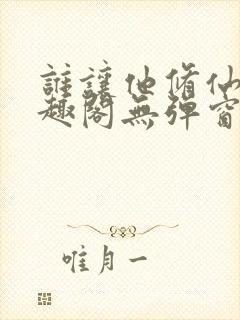 誰讓他脩仙
趣閣無彈窗
唯月一